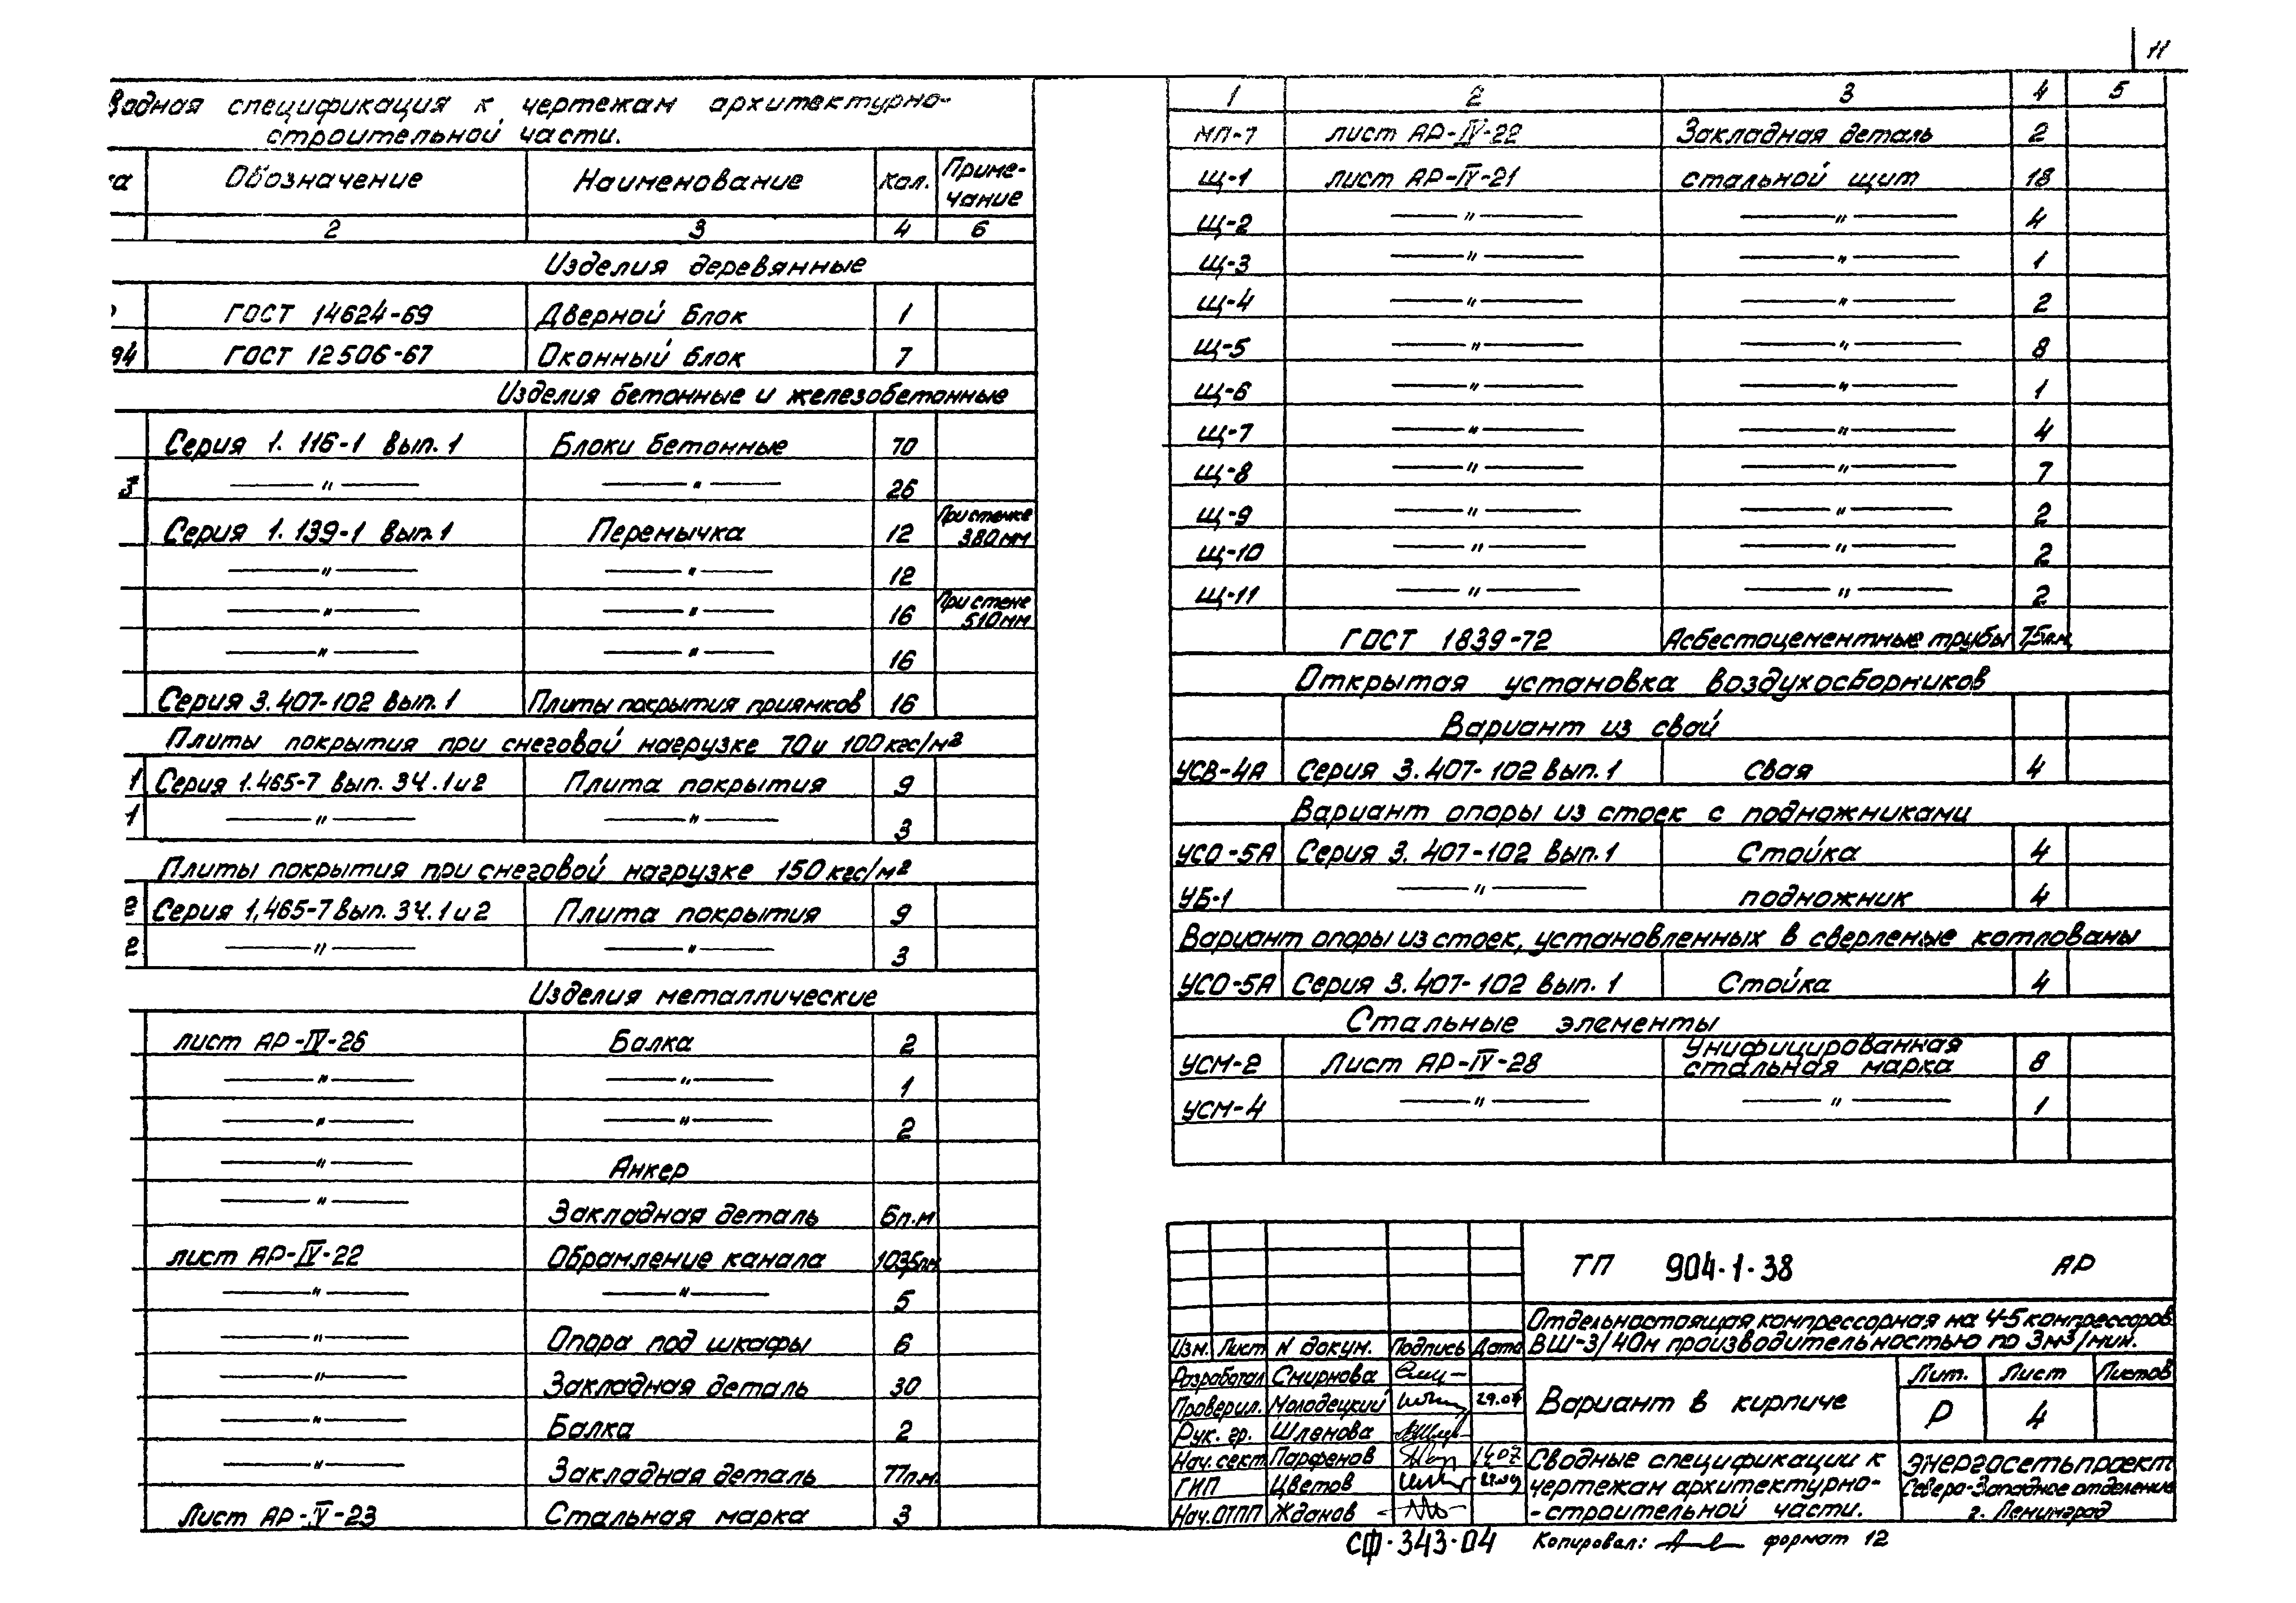 11
водная спецификация к чертежам архитектурно-
строительной части.
ка Обозначение Наименование Кол. Приме-
чание
2 3 4 6
Изделия деревянные
ГОСТ 14624-69 Дверной блок 1
94 ГОСТ 12506-67 Оконный блок 7
Изделия бетонные и железобетонные
Серия 1. 116-1 вып. 1 Блоки бетонные 70
3 —— " —— —— " —— 26
Серия 1. 139-1 вып. 1 Перемычка 12 При стенке
380 мм
—— " —— —— " —— 12
—— " —— —— " —— 16 При стене
510 мм
—— " —— —— " —— 16
Серия 3.407-102 вып. 1 Плиты покрытия приямков 16
Плиты покрытия при снеговой нагрузке 70 и 100 кгс/м²
1 Серия 1.465-7 вып. 3 Ч. 1 и 2 Плита покрытия 9
1 —— " —— —— " —— 3
Плиты покрытия при снеговой нагрузке 150 кгс/м²
2 Серия 1,465-7 вып. 3 Ч. 1 и 2 Плита покрытия 9
2 —— " —— —— " —— 3
Изделия металлические
лист АР-IV-26 Балка 2
—— " —— —— " —— 1
—— " —— —— " —— 2
—— " —— Анкер
—— " —— Закладная деталь 6п.м
лист АР-IV-22 Обрамление канала
—— " —— —— " —— 5
—— " —— Опора под шкафы 6
—— " —— Закладная деталь 30
—— " —— Балка 2
—— " —— Закладная деталь 77п.м.
Лист АР-V-23 Стальная марка 3
1 2 3 4 5
МП-7 лист АР-IV-22 Закладная деталь 2
Щ-1 лист АР-IV-21 стальной щит 18
Щ-2 —— " —— —— " —— 4
Щ-3 —— " —— —— " —— 1
Щ-4 —— " —— —— " —— 2
Щ-5 —— " —— —— " —— 8
Щ-6 —— " —— —— " —— 1
Щ-7 —— " —— —— " —— 4
Щ-8 —— " —— —— " —— 7
Щ-9 —— " —— —— " —— 2
Щ-10 —— " —— —— " —— 2
Щ-11 —— " —— —— " —— 2
ГОСТ 1839-72 Асбестоцементные трубы 75п.м.
Открытая установка воздухосборников
Вариант из свай
УСВ-4А Серия 3.407-102 вып. 1 свая 4
Вариант опоры из стоек с подножниками
УСО-5А Серия 3.407-102 вып. 1 Стойка 4
УБ-1 —— " —— подножник 4
Вариант опоры из стоек, установленных в сверленые котлованы
УСО-5А Серия 3.407-102 вып. 1 Стойка 4
Стальные элементы
УСМ-2 Лист АР-IV-28 Унифицированная
стальная марка 8
УСМ-4 —— " —— —— " —— 1
ТП 904-1-38 АР
Отдельностоящая компрессорная на 4-5 компрессоров
ВШ-3/40м производительностью по 3м³/мин.
Изм. Лист N докум. Подпись Дата
Разработал Смирнова
Проверил. Молодецкий
Рук. гр. Шленова
Нач. сект. Парфенов
ГИП Цветов
Нач. ОТПП Жданов
Вариант в кирпиче
Лит. Лист Листов
Р 4
Сводные спецификации к
чертежам архитектурно-
-строительной части.
Энергосетьпроект
Северо-Западное отделение
г. Ленинград
СФ-343-04 Копировал: формат 12